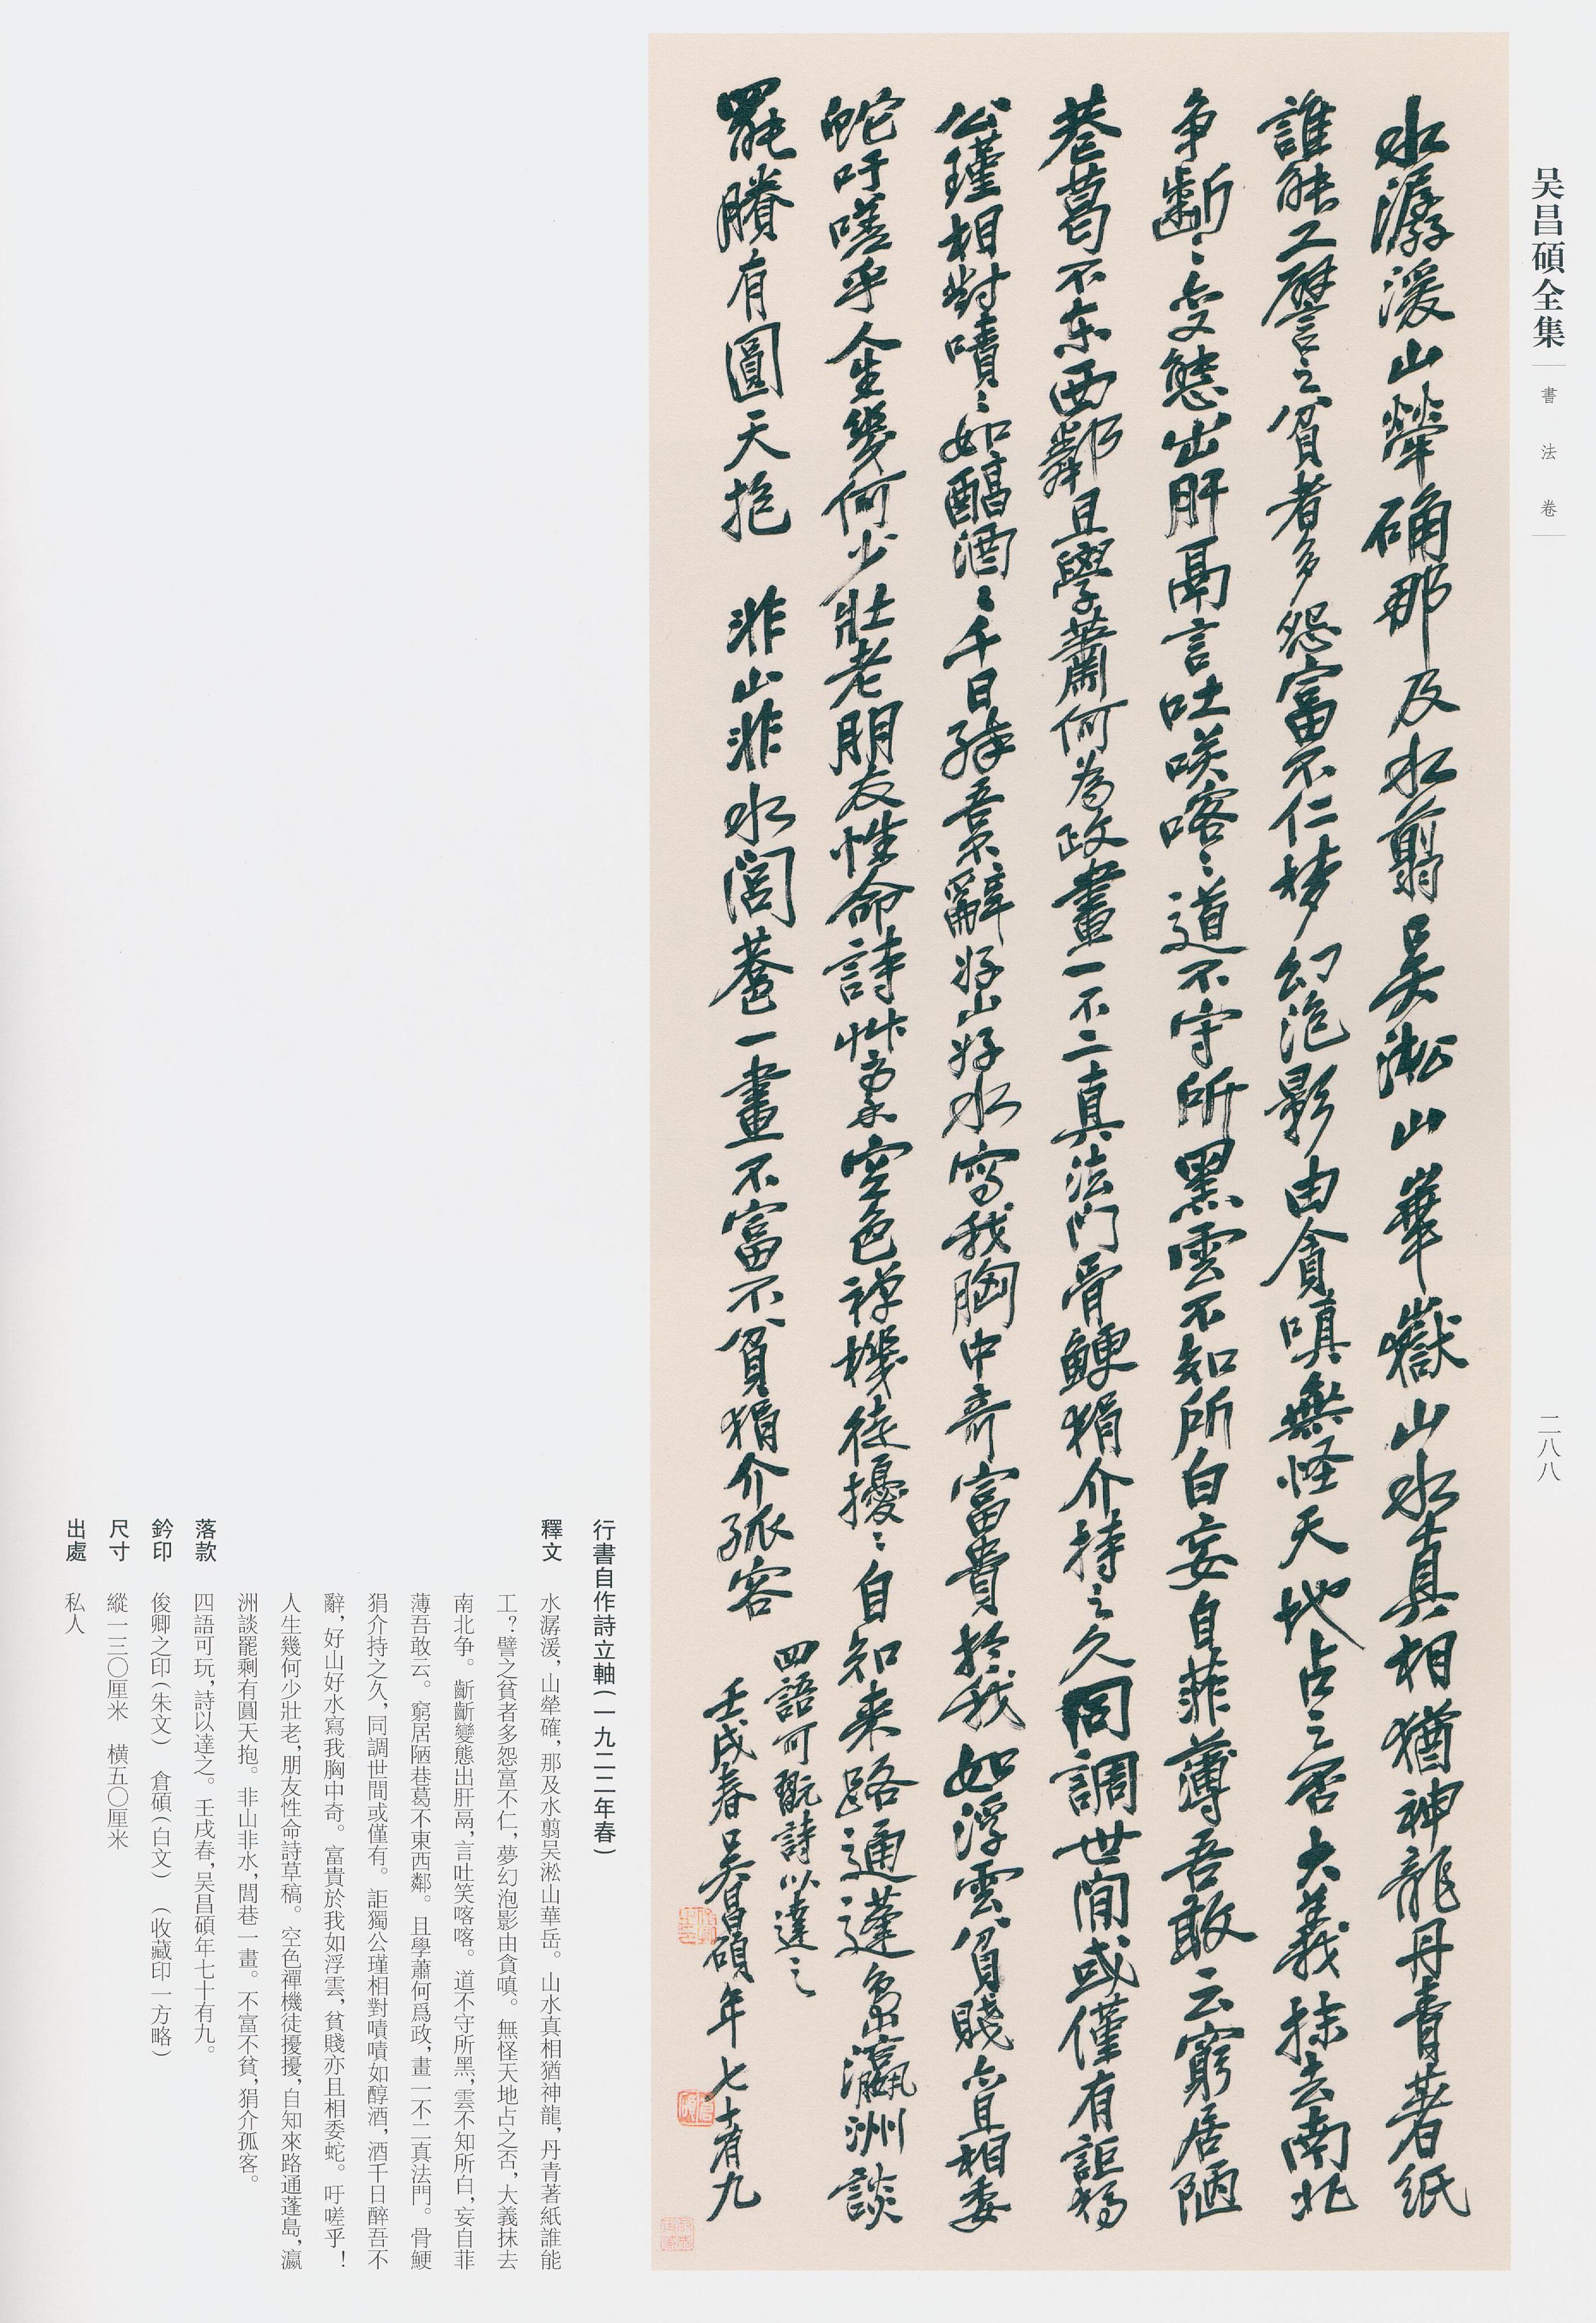 吴昌碩全集
書法卷
二八八
水潺湲山犖确那及水翦吴淞山華嶽山水真相猶神龍丹青著紙
誰能工譬之貧者多怨富不仁梦幻泡影由貪嗔無怪天地占之否大義抹去南北
争齗〻變態出肝鬲言吐咲喀〻道不守所黑雲不知所白妄自菲薄吾敢云窮居陋
巷葛不东西鄰且學蕭何為政畫一不二真法門骨鯁狷介持之久同調世間或僅有詎獨
公瑾相對嘖〻如醇酒〻千日醉吾不辭好山好水寫我胸中奇富貴於我如浮雲貧賤亦且相委
蛇吁嗟乎人生幾何少壯老朋友性命詩草稾空色禪機徒擾〻自知来路通蓬島瀛洲談
罷賸有圓天抱　非山非水閭巷一畫不富不貧狷介孤客
四語可翫詩以達之
壬戌春吴昌碩年七十有九
行書自作詩立軸(一九二二年春)
釋文　水潺湲，山犖確，那及水翦吴淞山華岳。山水真相猶神龍，丹青著紙誰能
工？譬之貧者多怨富不仁，夢幻泡影由貪嗔。無怪天地占之否，大義抹去
南北争。齗齗變態出肝鬲，言吐笑喀喀。道不守所黑，雲不知所白，妄自菲
薄吾敢云。窮居陋巷葛不東西鄰。且學蕭何爲政，畫一不二真法門。骨鯁
狷介持之久，同調世間或僅有。詎獨公瑾相對嘖嘖如醇酒，酒千日醉吾不
辭，好山好水寫我胸中奇。富貴於我如浮雲，貧賤亦且相委蛇。吁嗟乎！
人生幾何少壯老，朋友性命詩草稿。空色禪機徒擾擾，自知來路通蓬島，瀛
洲談罷剩有圓天抱。非山非水，閭巷一畫。不富不貧，狷介孤客。
落款　四語可玩，詩以達之。壬戌春，吴昌碩年七十有九。
鈐印　俊卿之印(朱文)　倉碩(白文)　(收藏印一方略)
尺寸　縱一三〇厘米　橫五〇厘米
出處　私人